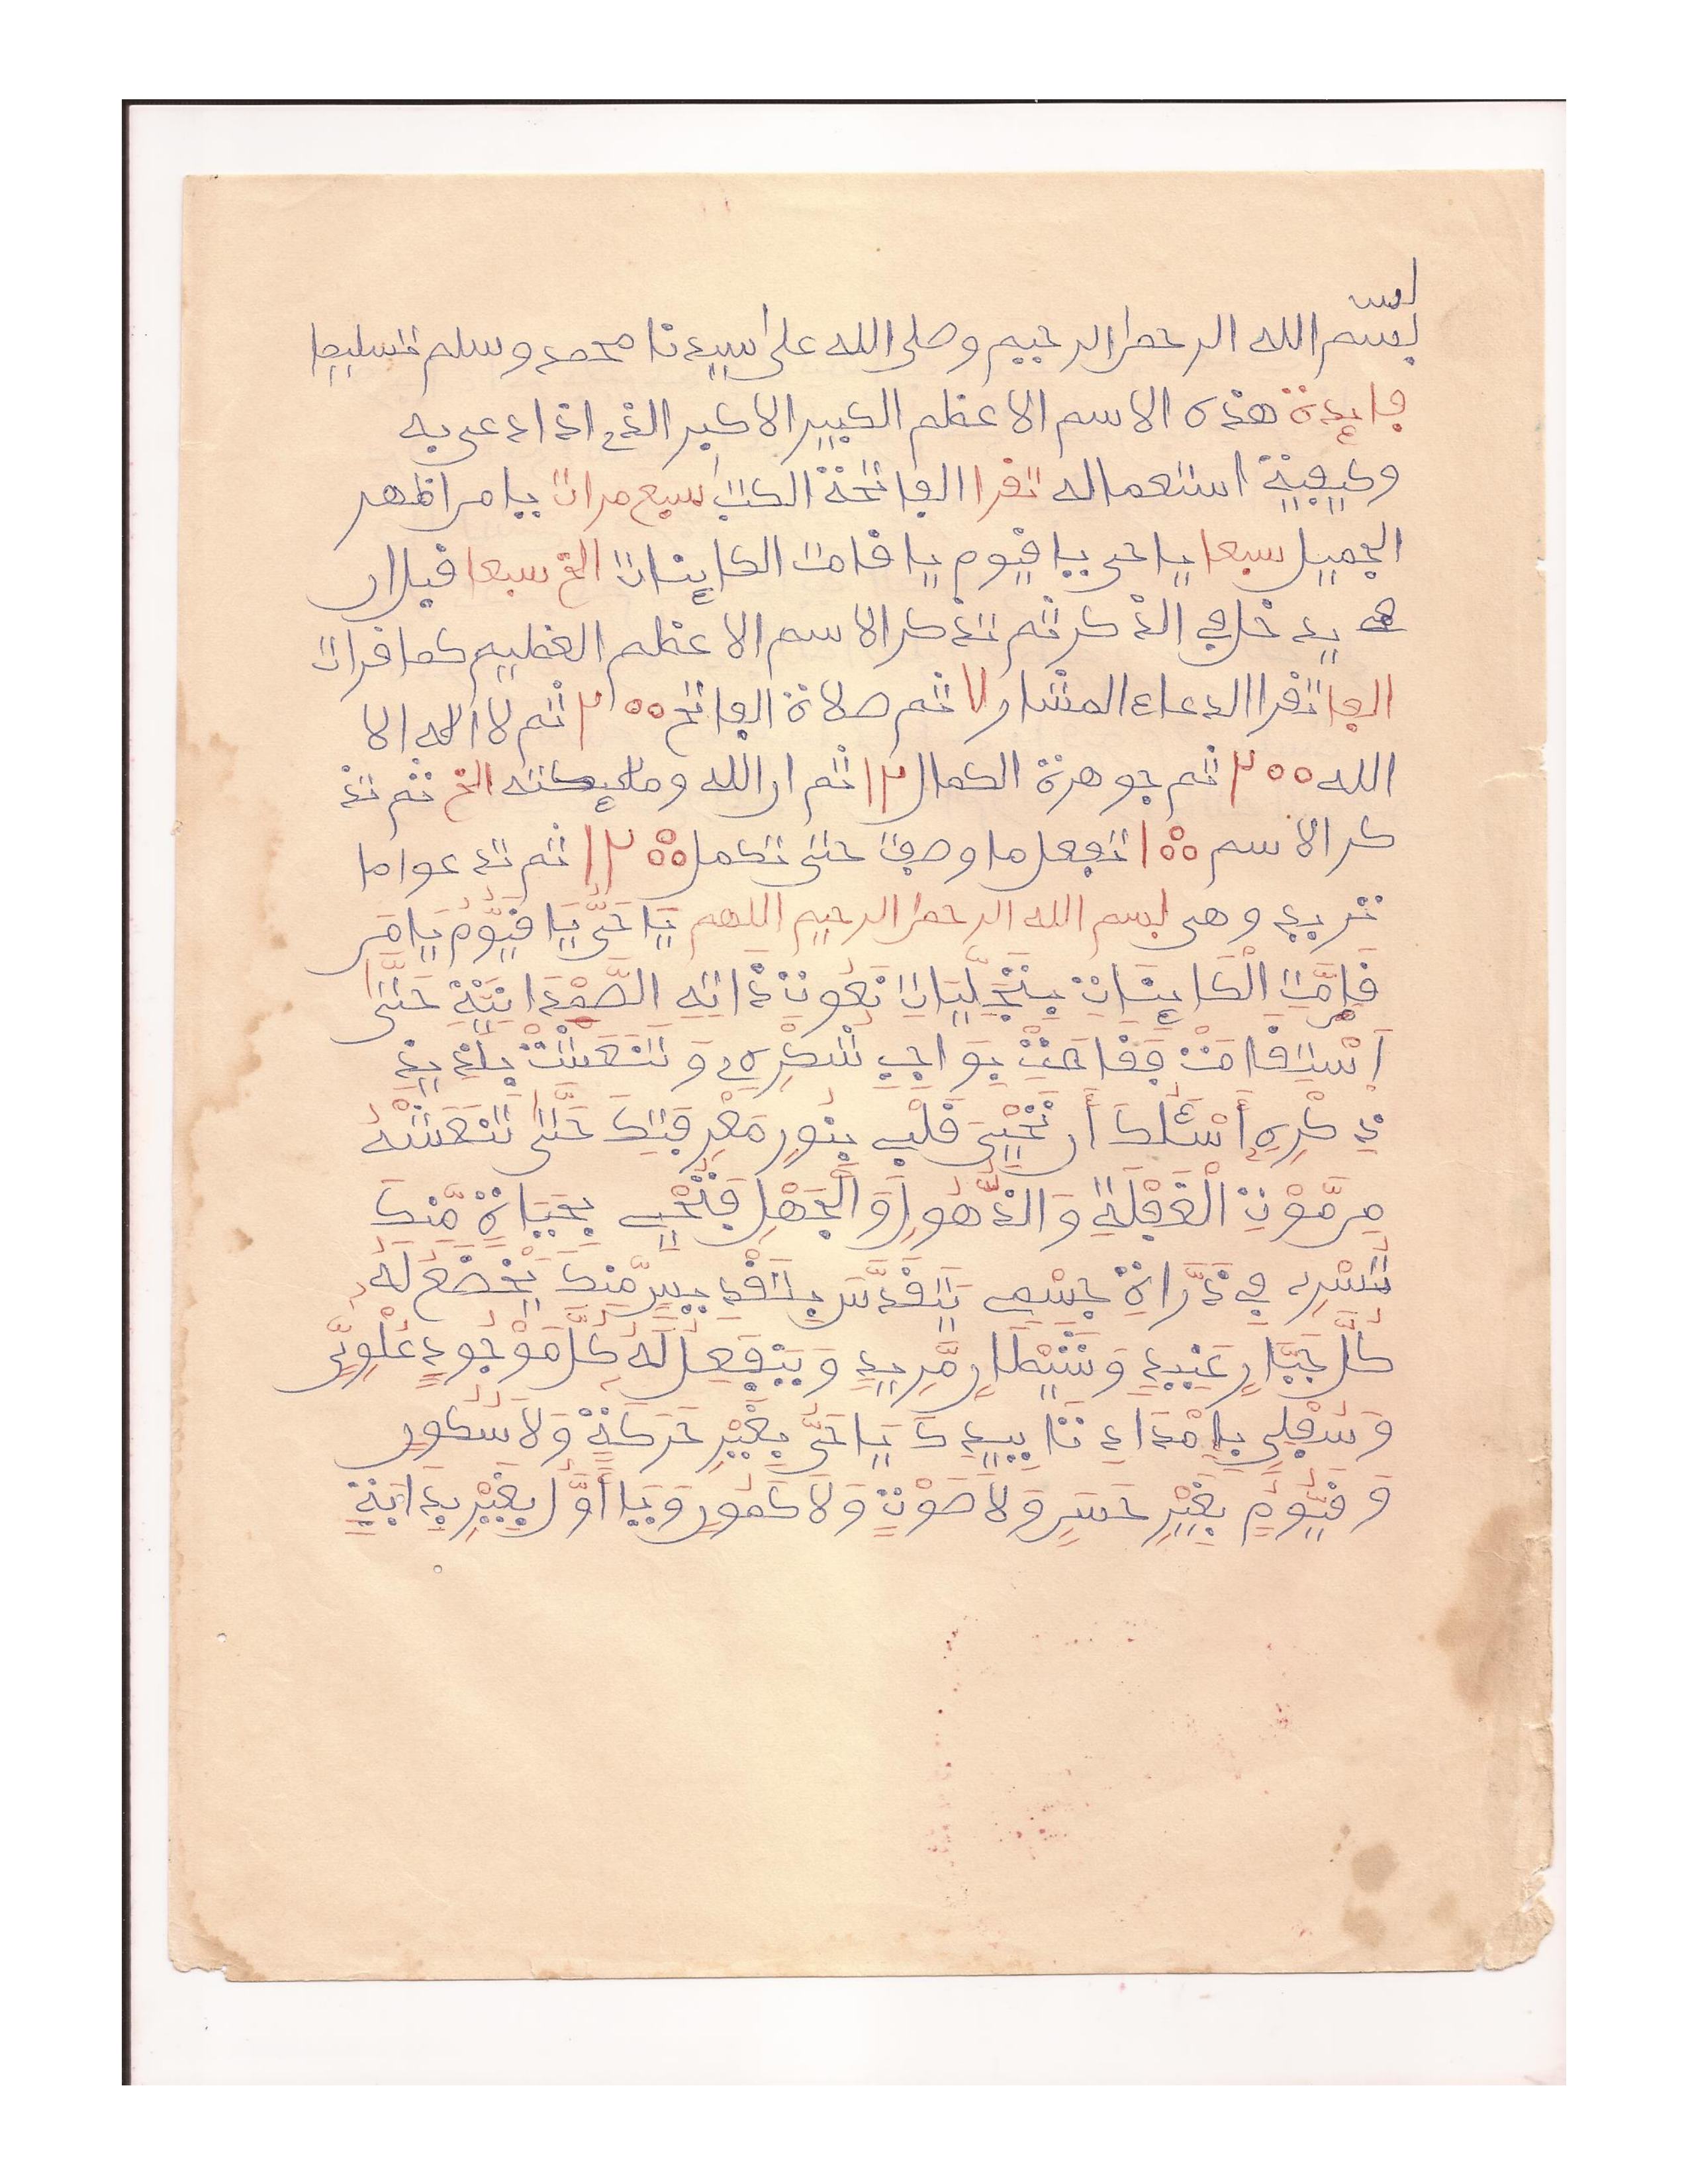 بس
بسم الله الرحمن الرحيم وصلى الله على سيدنا محمد وسلم تسليما
فايدة هذه الاسم الاعظم الكبير الاكبر الذي اذا دعى به
وكيفية استعماله تقرا الفاتحة الكتب سبع مرات يا من اظهر
الجميل سبعا يا حى يا قيوم يا قامت الكاينات الخ سبعا قبل ان
يدخل في الذكر ثم تذكر الاسم الاعظم العظيم كما قرات
الفا تقرا الدعاء المشار ٧ ثم صلاة الفاتح ٢٠٠ ثم لا اله الا
الله ٢٠٠ ثم جوهرة الكمال ١٢ ثم ان الله ومليكته الخ ثم تذ
كر الاسم ١٠٠ تفعل ما وصفت حتى تكمل ١٢٠٠ ثم تدعوا ما
تريد وهى بسم الله الرحمن الرحيم اللهم يَا حَىُّ يَا قَيُّومُ يَا مَن
قَامَتِ الْكَاينَاتِ بِتَجَلِّيَاتِ نُعُوتِ ذَاتِهِ الصَّمْدَانِيَّةِ حَتَّى
اِسْتَقَامَتْ فَقَامَتْ بِوَاجِبِ شُكْرِهِ وَتَنَعَّشَتْ بِلَذِيذِ
ذِكْرِهِ أَسْئَلُكَ أَن تُحْيِىَ قَلْبِي بِنُورِ مَعْرِفَتِكَ حَتَّى تَنْعَشَهُ
مِن مَّوْتِ الْغَفْلَةِ وَالذُّهُولِ وَالْجَهْلِ فَتُحْيِي بِحَيَاةٍ مِّنكَ
تَسْرِي فِي ذَرَّاتِ جِسْمِي تَتَقَدَّسَ بِتَقْدِيسٍ مِّنكَ يَخْضَعُ لَهُ
كُلُّ جَبَّارٍ عَنِيدٍ وَشَيْطَانٍ مَّرِيدٍ وَيَنفَعِلُ لَهُ كُلُّ مَوْجُودٍ عُلْوِيٍّ
وَسُفْلِيٍّ بِإِمْدَادِ تَايِيدِكَ يَا حَىُّ بِغَيْرِ حَرَكَةٍ وَلَا سُكُونٍ
وَقَيُّومُ بِغَيْرِ حَسٍّ وَلَا صَوْتٍ وَلَا كُمُونٍ وَيَا أَوَّلُ بِغَيْرِ بِدَايَةٍ